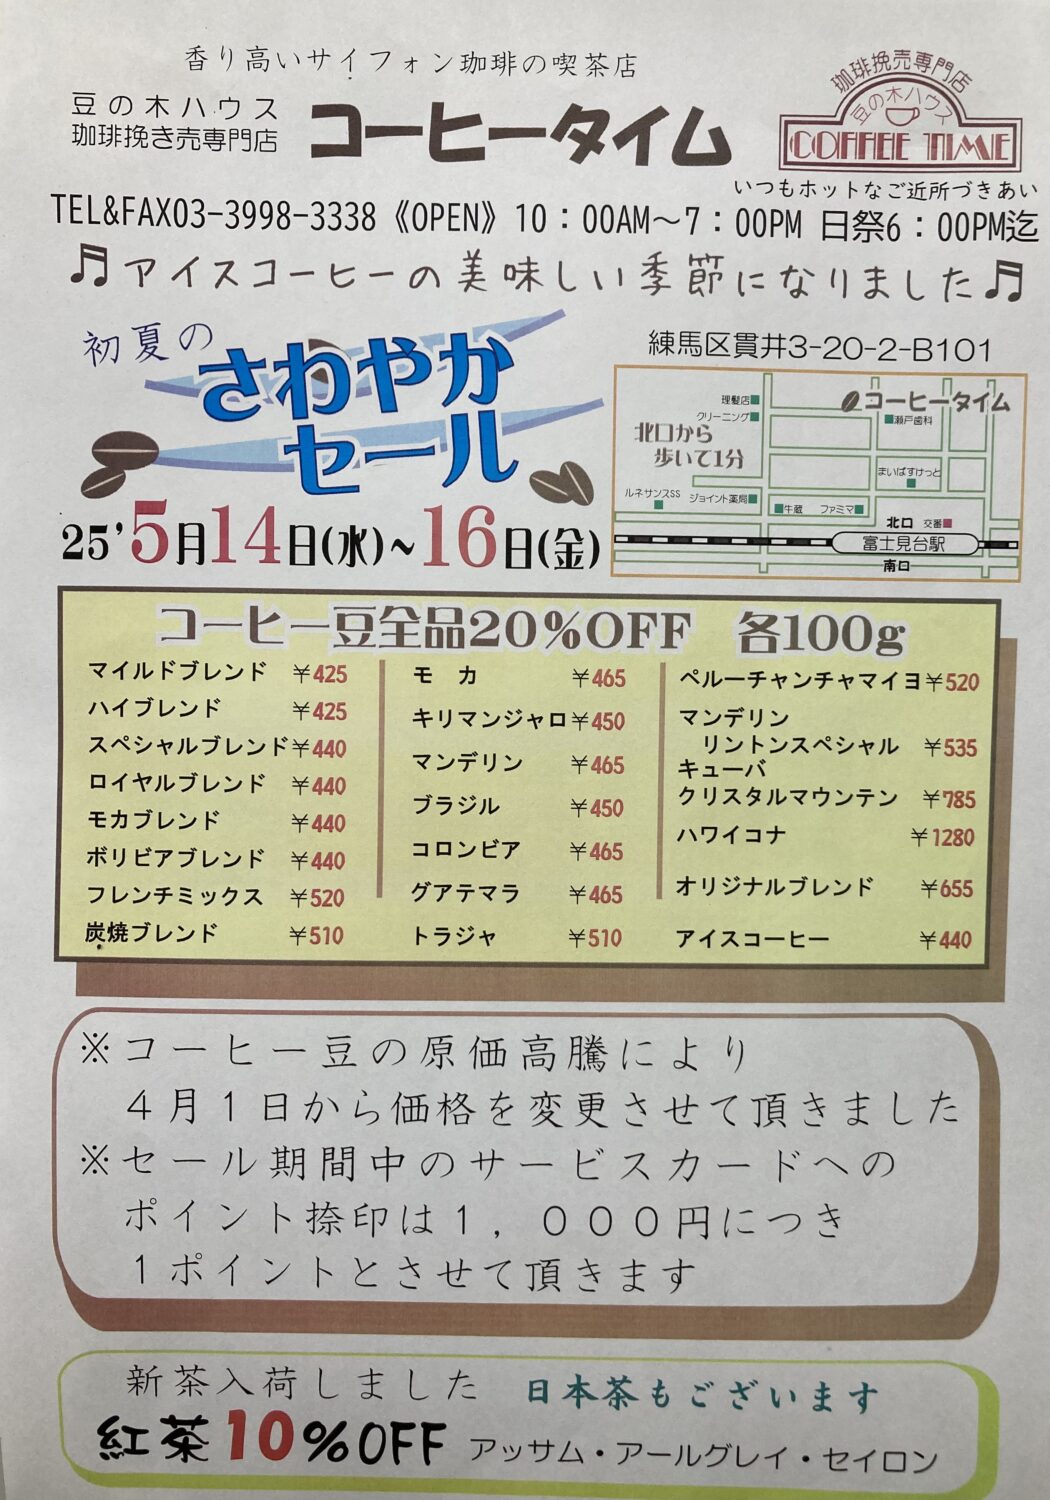 香り高いサイフォン珈琲の喫茶店
豆の木ハウス
珈琲挽き売専門店
コーヒータイム
珈琲挽売専門店
豆の木ハウス
COFFEE TIME
いつもホットなご近所づきあい
TEL&FAX03-3998-3338《OPEN》10：00AM～7：00PM 日祭6：00PM迄
♬アイスコーヒーの美味しい季節になりました♬
初夏の
さわやか
セール
25'5月14日(水)~16日(金)
練馬区貫井3-20-2-B101
コーヒータイム
理髪店
クリーニング
瀬戸歯科
北口から
歩いて1分
まいばすけっと
ルネサンスSS
ジョイント薬局
牛蔵
ファミマ
北口
交番
富士見台駅
南口
コーヒー豆全品20%OFF 各100g
マイルドブレンド ￥425
ハイブレンド ￥425
スペシャルブレンド￥440
ロイヤルブレンド ￥440
モカブレンド ￥440
ボリビアブレンド ￥440
フレンチミックス ￥520
炭焼ブレンド ￥510
モ カ ￥465
キリマンジャロ￥450
マンデリン ￥465
ブラジル ￥450
コロンビア ￥465
グアテマラ ￥465
トラジャ ￥510
ペルーチャンチャマイヨ￥520
マンデリン
リントンスペシャル ￥535
キューバ
クリスタルマウンテン ￥785
ハワイコナ ￥1280
オリジナルブレンド ￥655
アイスコーヒー ￥440
※コーヒー豆の原価高騰により
４月１日から価格を変更させて頂きました
※セール期間中のサービスカードへの
ポイント捺印は１，０００円につき
１ポイントとさせて頂きます
新茶入荷しました 日本茶もございます
紅茶10%OFF アッサム・アールグレイ・セイロン